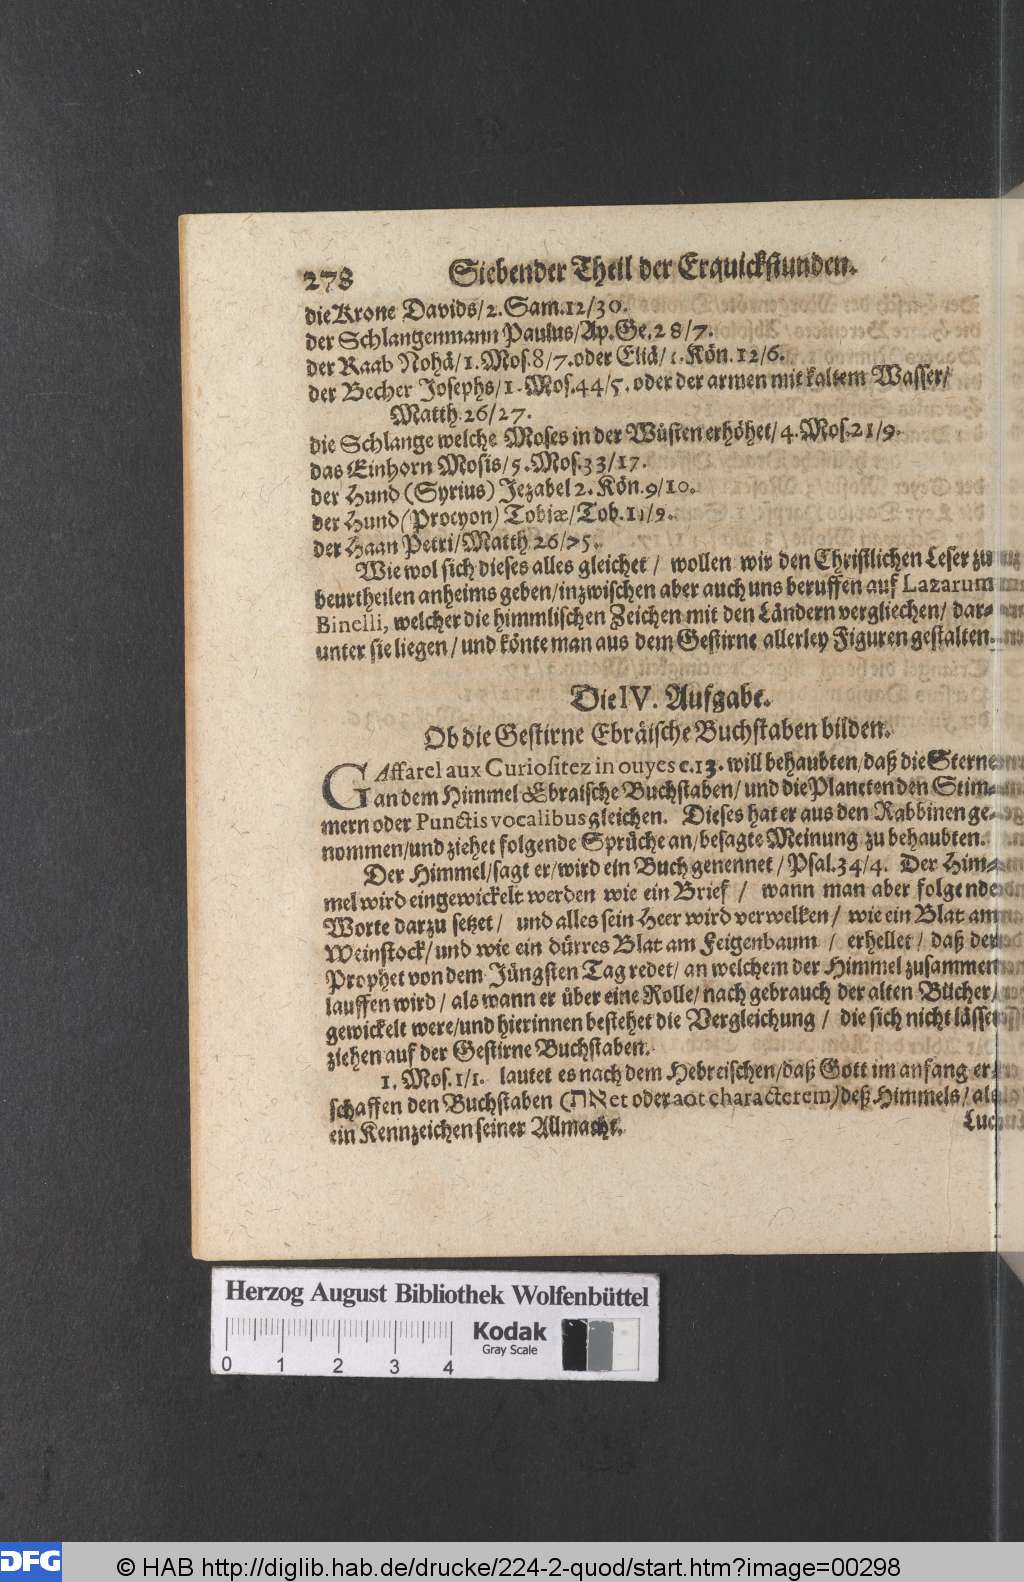 278 Siebender Theil der Erquickstunden.
die Krone Davids/2. Sam.12/30.
der Schlangenmann Paulus/Ap. Ge. 28/7.
der Raab Nohä/1. Mos. 8/7. oder Eliä/1. Kön. 12/6.
der Becher Josephs/1. Mos. 44/5. oder der armen mit kaltem Wasser/
Matth. 26/27.
die Schlange welche Moses in der Wüsten erhöhet/4. Mos. 21/9.
das Einhorn Mosis/5. Mos. 33/17.
der Hund (Syrius) Jezabel 2. Kön. 9/10.
der Hund (Procyon) Tobiæ/Tob. 11/9.
der Haan Petri/Matth. 26/75.
Wie wol sich dieses alles gleichet / wollen wir den Christlichen Leser zu
beurtheilen anheims geben/inzwischen aber auch uns beruffen auf Lazarum
Binelli, welcher die himmlischen Zeichen mit den Ländern vergliechen/ dar-
unter sie liegen/ und könte man aus dem Gestirne allerley Figuren gestalten.
Die IV. Aufgabe.
Ob die Gestirne Ebräische Buchstaben bilden.
GAffarel aux Curiositez in ouyes c.13. will behaubten/daß die Sterne
an dem Himmel Ebraische Buchstaben/ und die Planeten den Stim-
mern oder Punctis vocalibus gleichen. Dieses hat er aus den Rabbinen ge-
nommen/und ziehet folgende Sprüche an/besagte Meinung zu behaubten.
Der Himmel/sagt er/wird ein Buch genennet/ Psal.34/4. Der Him-
mel wird eingewickelt werden wie ein Brief / wann man aber folgende
Worte darzu setzet/ und alles sein Heer wird verwelken/ wie ein Blat am
Weinstock/und wie ein dürres Blat am Feigenbaum / erhellet/ daß der
Prophet von dem Jüngsten Tag redet/ an welchem der Himmel zusammen
lauffen wird/ als wann er über eine Rolle/nach gebrauch der alten Bücher/
gewickelt were/und hierinnen bestehet die Vergleichung / die sich nicht lässet
ziehen auf der Gestirne Buchstaben.
1. Mos. 1/1. lautet es nach dem Hebreischen/daß Gott im anfang er-
schaffen den Buchstaben (את et oder aot characterem) deß Himmels/ als
ein Kennzeichen seiner Allmacht.
Herzog August Bibliothek Wolfenbüttel
0 1 2 3 4
Kodak
Gray Scale
DFG © HAB http://diglib.hab.de/drucke/224-2-quod/start.htm?image=00298